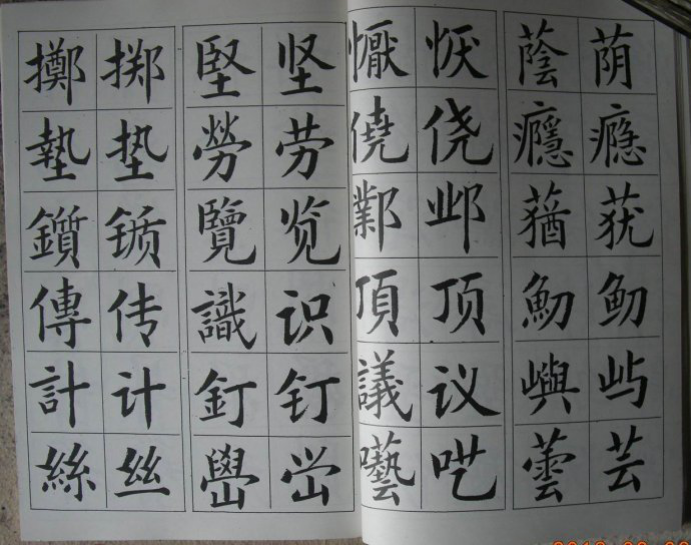 擲 掷 堅 坚 懨 恹 蔭 荫
墊 垫 勞 劳 僥 侥 癮 瘾
鑕 锧 覽 览 鄴 邺 蕕 莸
傳 传 識 识 頂 顶 魛 鱽
計 计 釘 钉 議 议 嶼 屿
絲 丝 嶨 峃 囈 呓 蕓 芸